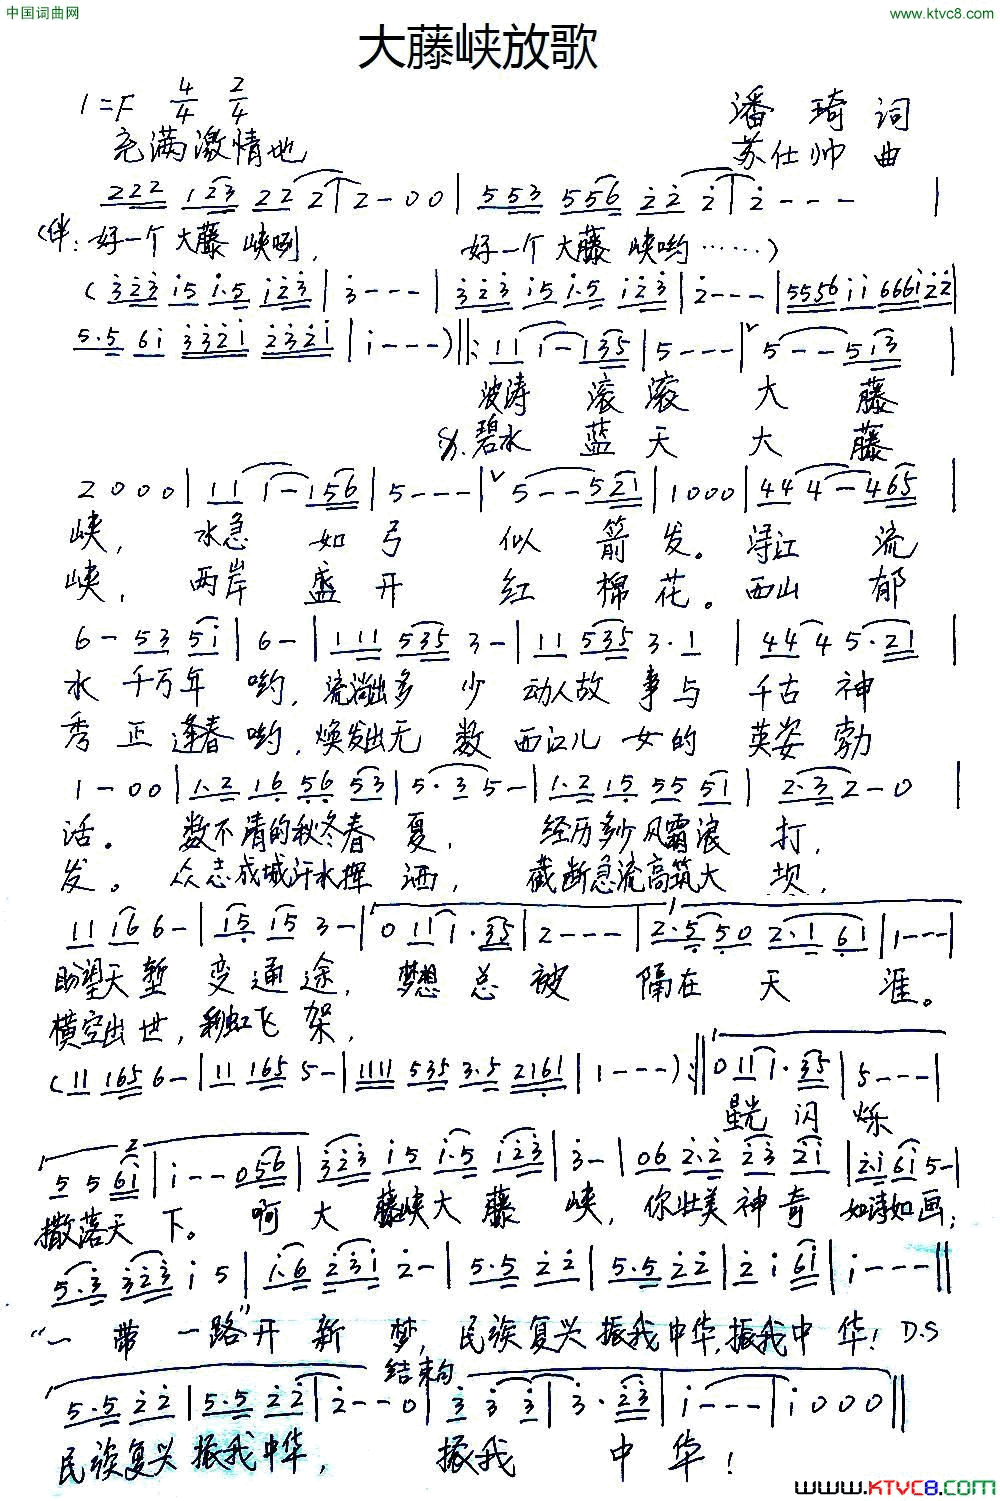 中国词曲网
www.ktvc8.com
大藤峡放歌
1=F 4/4 2/4
潘琦 词
充满激情地
苏仕帅 曲
222 123 22 2 | 2-00 | 553 556 22 2 | 2--- |
(伴:好一个大藤峡咧, 好一个大藤峡哟……)
(323 15 1·5 123 | 3--- | 323 15 1·5 123 | 2--- | 5556 11 666122 |
5·5 61 3321 2321 | 1---)||: 11 1-135 | 5--- | 5--513 |
波涛 滚滚 大 藤
(2.碧水 蓝天 大 藤
2000 | 11 1-156 | 5--- | 5--521 | 1000 | 44 4-465 |
峡, 水急 如弓 似 箭发。浔江 流
峡, 两岸 盛开 红 棉花。西山 郁
6-53 51 | 6- | 111 535 3- | 11 535 3·1 | 44 4 5·21 |
水 千万年 哟, 流淌出多 少 动人故 事与 千古神
秀 正逢春 哟, 焕发出无 数 西江儿 女的 英姿勃
1-00 | 1·2 16 56 53 | 5·3 5- | 1·2 15 55 51 | 2·3 2-0 |
话。 数不清的秋冬春 夏, 经历多少风霜浪 打,
发。 众志成城汗水挥 洒, 截断急流高筑大 坝,
11 16 6- | 15 15 3- | 0 11 1·35 | 2--- | 2·5 50 2·1 61 | 1--- |
盼望天堑 变通途, 梦想总被 隔在天涯。
横空出世,彩虹飞架,
(11 165 6- | 11 165 5- | 1111 535 3·5 2161 | 1---):|| 0 11 1·35 | 5--- |
星光 闪 烁
5 5 61 | 1--056 | 323 15 1·5 123 | 3- | 06 2·2 23 21 | 2·1 61 5- |
撒落天 下。 啊 大 藤峡大 藤 峡, 你壮美神奇 如诗如画;
5·3 323 1 5 | 1·6 231 2- | 5·5 22 | 5·5 22 | 2 1 61 | 1--- ||
“一 带 一路”开 新 梦, 民族复兴 振我中华,振我中 华! D.S
结束句
5·5 22 | 5·5 22 | 2--0 | 3 3 3 | 3·23 | 1--- | 1000 ||
民族复兴 振我中华, 振我 中 华!
www.KTVC8.com